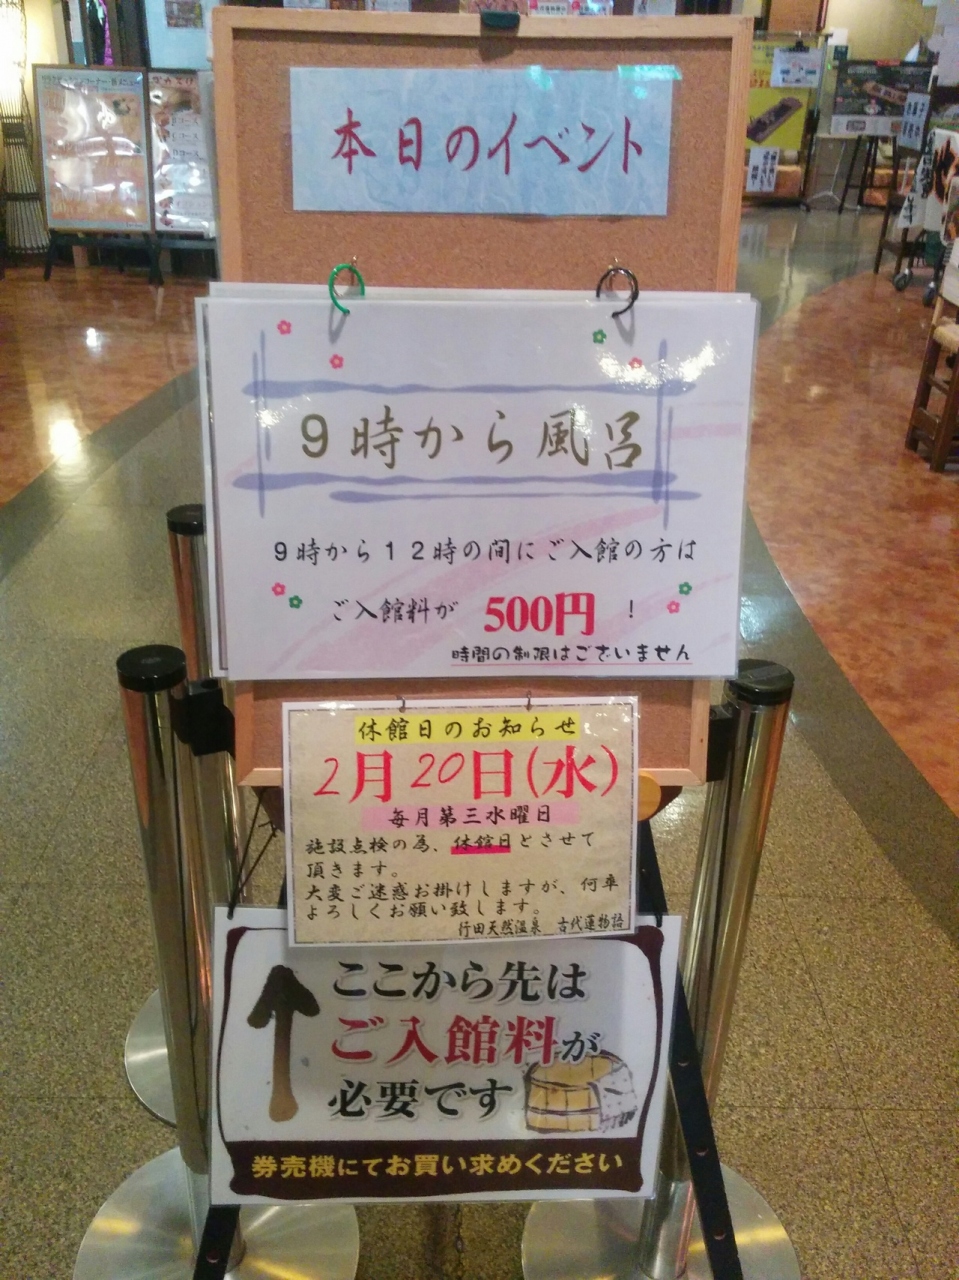 本日のイベント
9時から風呂
9時から12時の間にご入館の方は
ご入館料が 500円 !
時間の制限はございません
休館日のお知らせ
2月20日(水)
毎月第三水曜日
施設点検の為、休館日とさせて
頂きます。
大変ご迷惑お掛けしますが、何卒
よろしくお願い致します。
行田天然温泉 古代蓮物語
ここから先は
ご入館料が
必要です
券売機にてお買い求めください